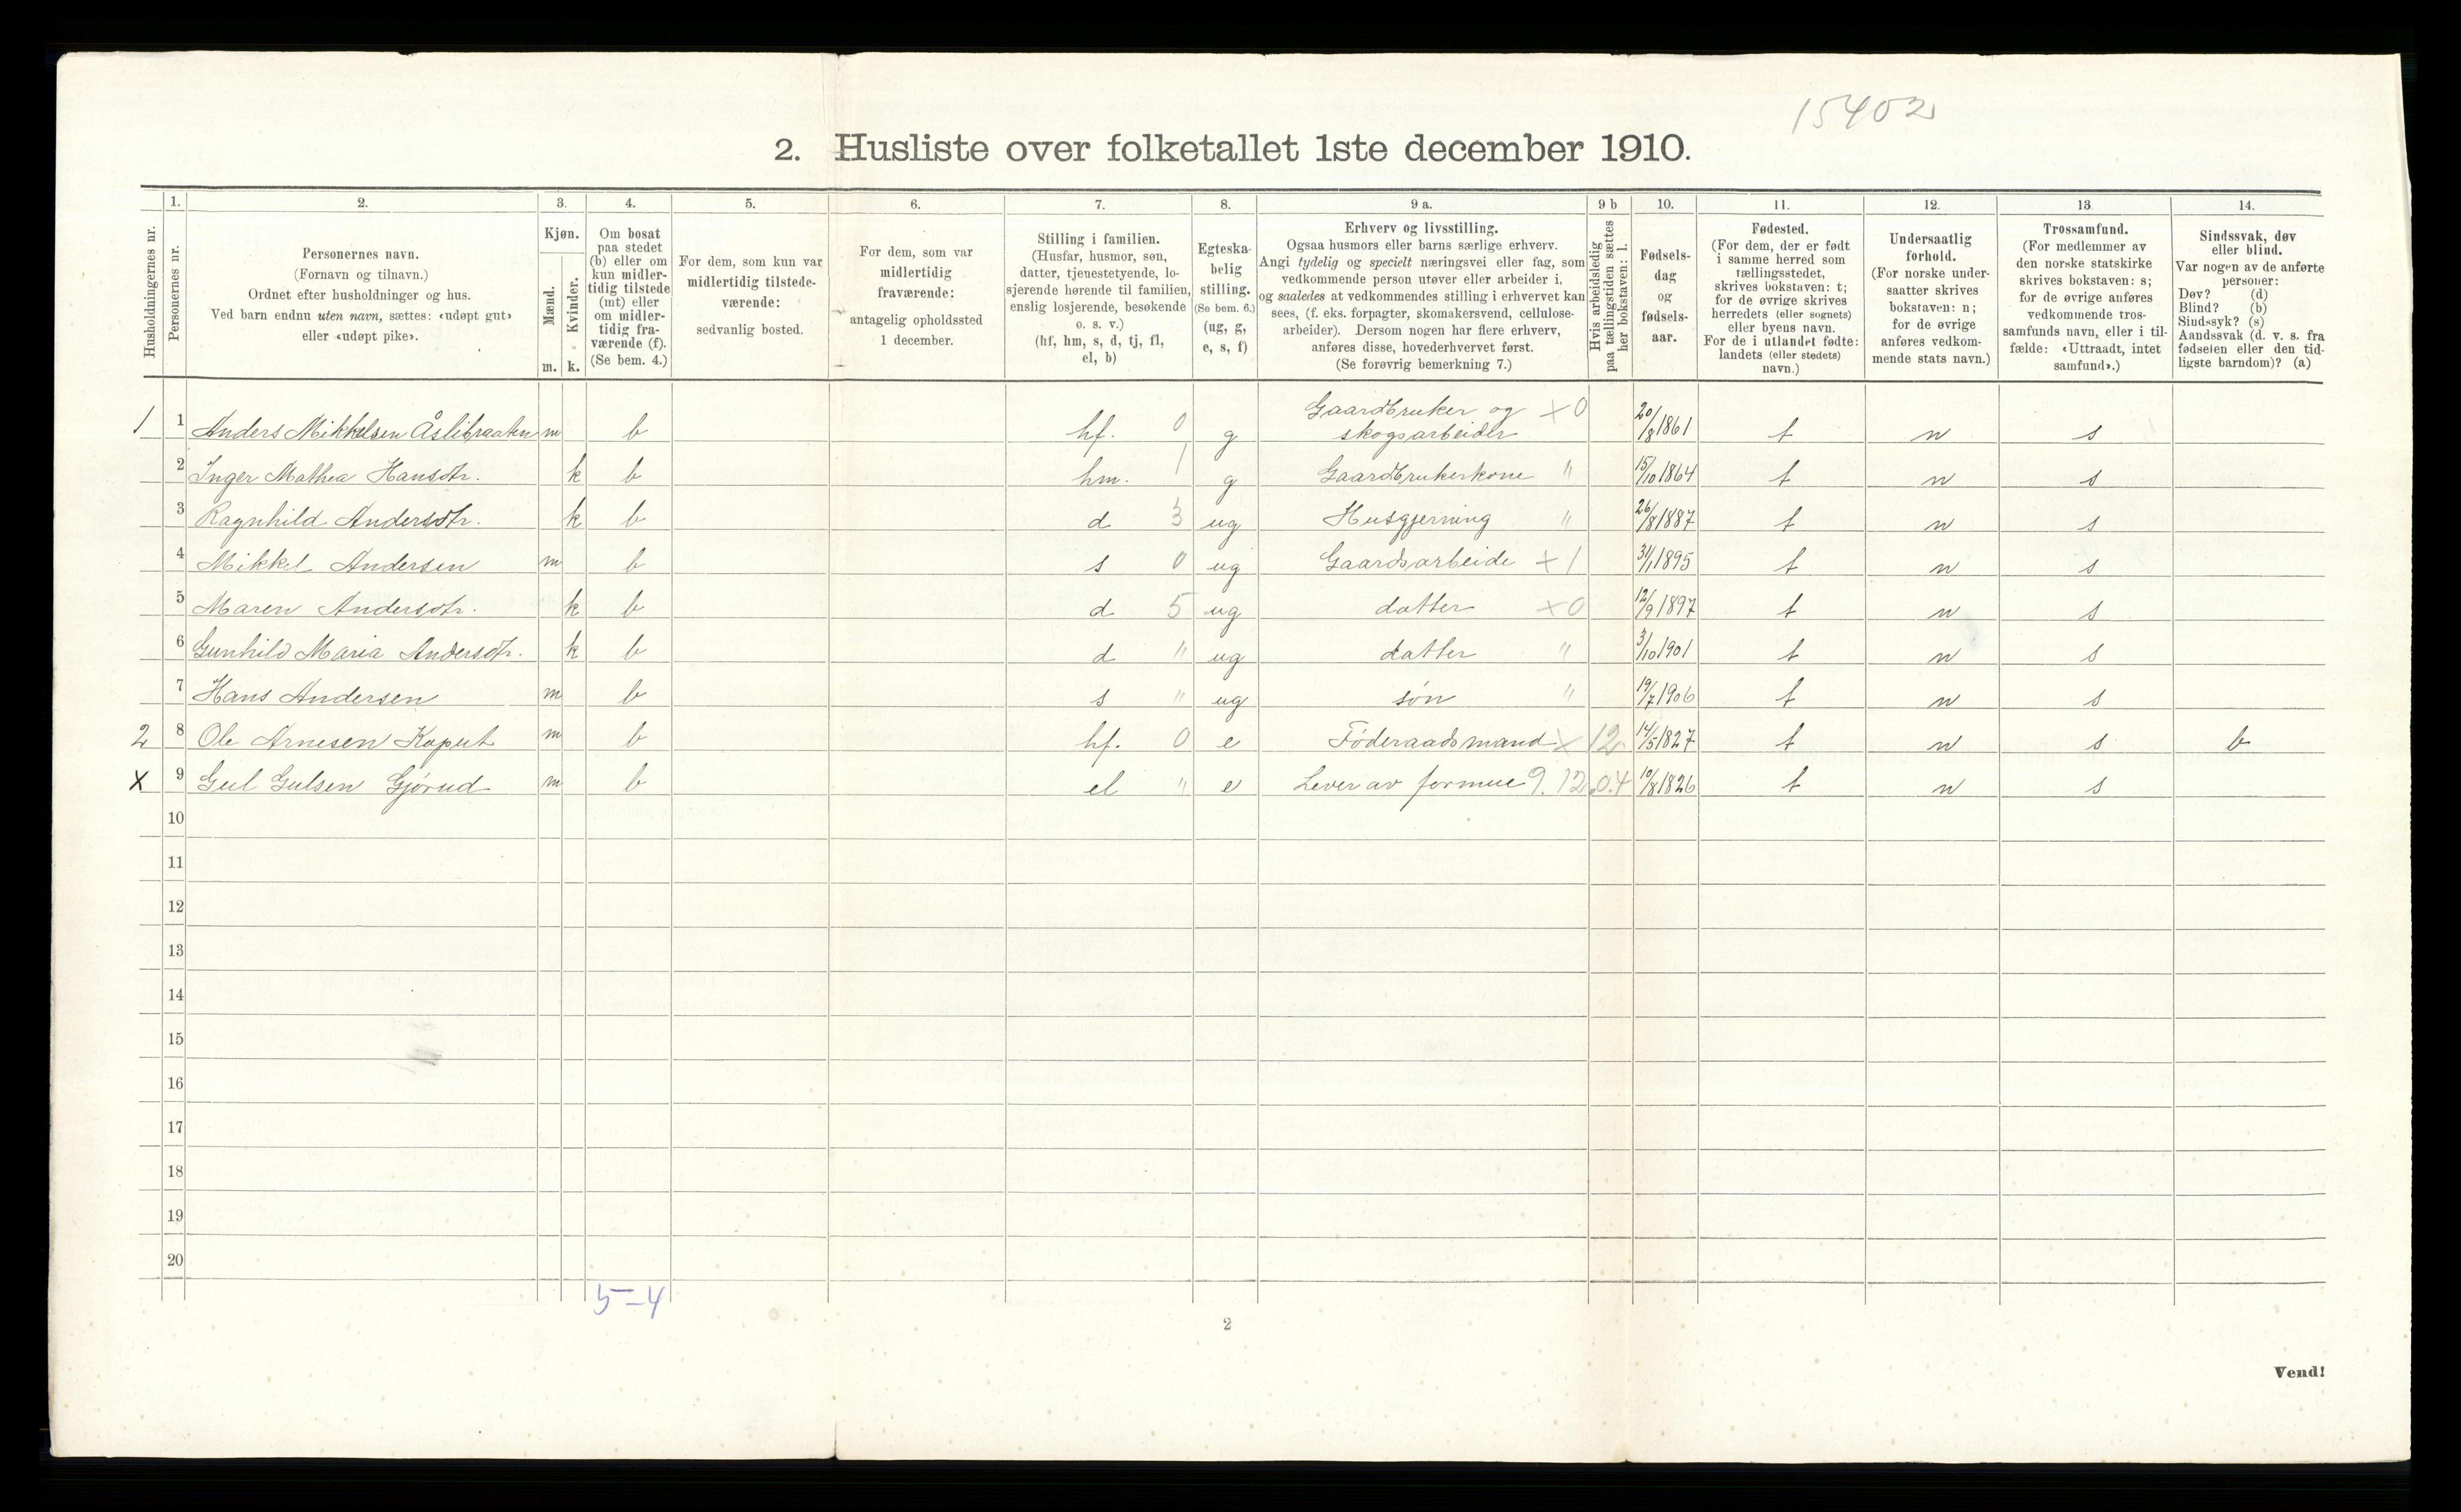 15402
2. Husliste over folketallet 1ste december 1910.
Husholdningernes nr.
1. Personernes nr.
2. Personernes navn.
(Fornavn og tilnavn.)
Ordnet efter husholdninger og hus.
Ved barn endnu uten navn, sættes: «udøpt gut»
eller «udøpt pike».
3. Kjøn.
Mænd. Kvinder.
m. k.
4. Om bosat
paa stedet
(b) eller om
kun midler-
tidig tilstede
(mt) eller
om midler-
tidig fra-
værende (f).
(Se bem. 4.)
5. For dem, som kun var
midlertidig tilstede-
værende:
sedvanlig bosted.
6. For dem, som var
midlertidig
fraværende:
antagelig opholdssted
1 december.
7. Stilling i familien.
(Husfar, husmor, søn,
datter, tjenestetyende, lo-
sjerende hørende til familien,
enslig losjerende, besøkende
o. s. v.)
(hf, hm, s, d, tj, fl,
el, b)
8. Egteska-
belig
stilling.
(Se bem. 6.)
(ug, g,
e, s, f)
9 a. Erhverv og livsstilling.
Ogsaa husmors eller barns særlige erhverv.
Angi tydelig og specielt næringsvei eller fag, som
vedkommende person utøver eller arbeider i,
og saaledes at vedkommendes stilling i erhvervet kan
sees, (f. eks. forpagter, skomakersvend, cellulose-
arbeider). Dersom nogen har flere erhverv,
anføres disse, hovederhvervet først.
(Se forøvrig bemerkning 7.)
9 b Hvis arbeidsledig
paa tællingstiden sættes
her bokstaven: l.
10. Fødsels-
dag
og
fødsels-
aar.
11. Fødested.
(For dem, der er født
i samme herred som
tællingsstedet,
skrives bokstaven: t;
for de øvrige skrives
herredets (eller sognets)
eller byens navn.
For de i utlandet fødte:
landets (eller stedets)
navn.)
12. Undersaatlig
forhold.
(For norske under-
saatter skrives
bokstaven: n;
for de øvrige
anføres vedkom-
mende stats navn.)
13 Trossamfund.
(For medlemmer av
den norske statskirke
skrives bokstaven: s;
for de øvrige anføres
vedkommende tros-
samfunds navn, eller i til-
fælde: «Uttraadt, intet
samfund».)
14. Sindssvak, døv
eller blind.
Var nogen av de anførte
personer:
Døv? (d)
Blind? (b)
Sindssyk? (s)
Aandssvak (d. v. s. fra
fødselen eller den tid-
ligste barndom)? (a)
1 1 Anders Mikkelsen Åslibraaten m b hf. 0 g Gaardbruker og skogsarbeider x 0 20/8 1861 t n s
2 Inger Mathea Hansdtr. k b hm. 1 g Gaardbrukerkone " 15/10 1864 t n s
3 Ragnhild Andersdtr. k b d 3 ug Husgjerning " 26/8 1887 t n s
4 Mikkel Andersen m b s 0 ug Gaardsarbeide x 1 31/1 1895 t n s
5 Maren Andersdtr. k b d 5 ug datter x 0 12/9 1897 t n s
6 Gunhild Maria Andersdtr. k b d " ug datter " 3/10 1901 t n s
7 Hans Andersen m b s " ug søn " 19/7 1906 t n s
2 8 Ole Arnesen Kaput m b hf. 0 e Føderaadsmand x 12 14/5 1827 t n s b
x 9 Gul Gulsen Gjørud m b el " e Lever av formue 9.12.0.4 10/8 1826 t n s
10
11
12
13
14
15
16
17
18
19
20
5-4
2
Vend!